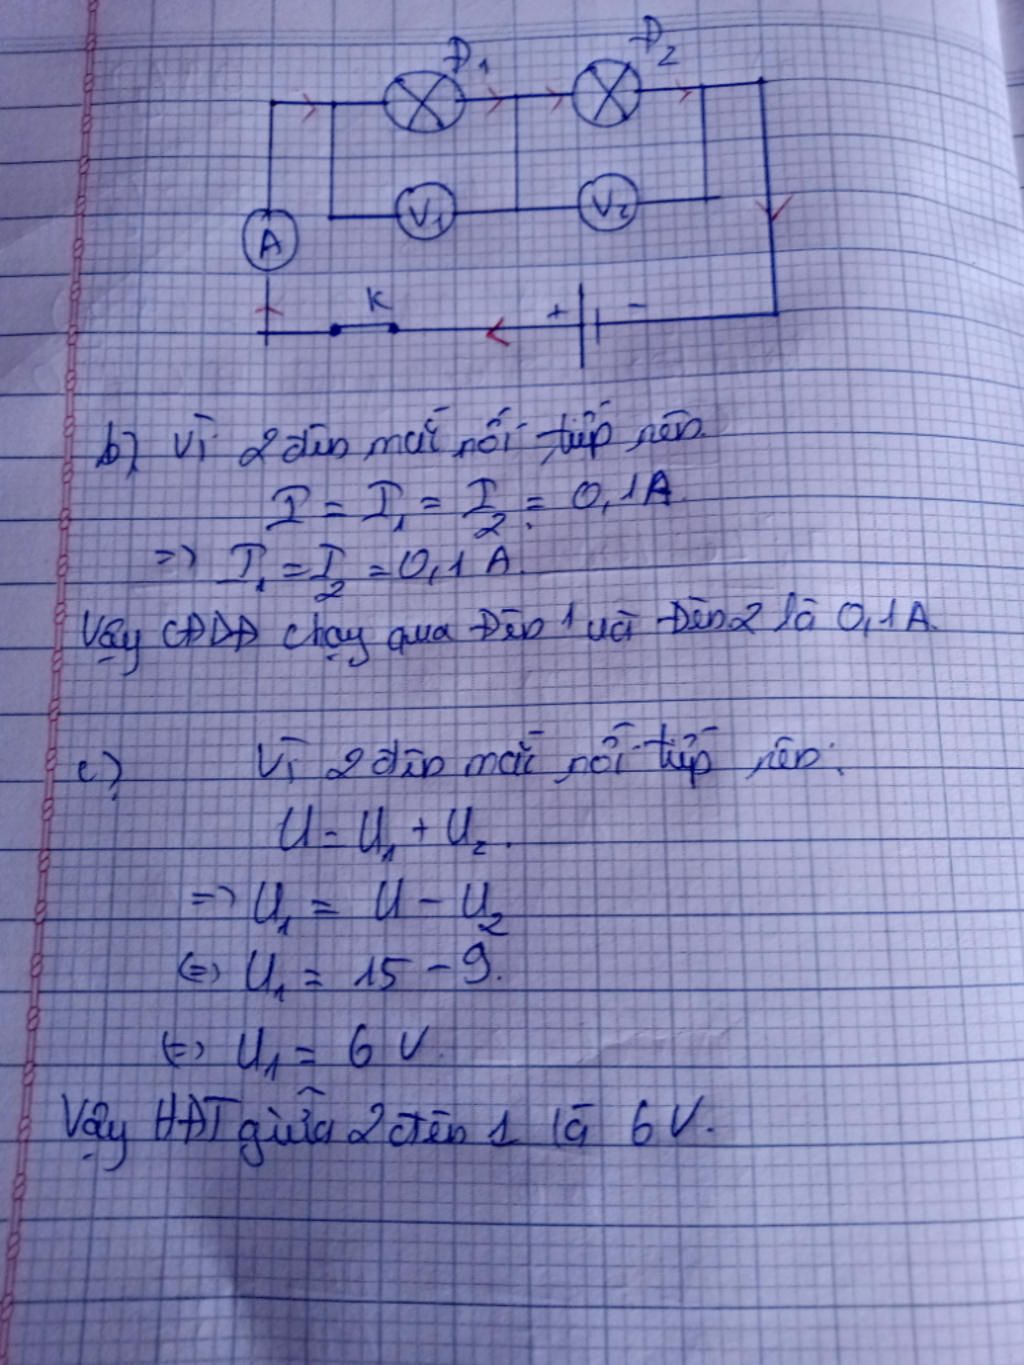 Đ1 Đ2
V1 V2
A
K + -
b) Vì 2 đèn mắc nối tiếp nên.
I = I1 = I2 = 0,1A.
=> I1 = I2 = 0,1A.
Vậy CĐDĐ chạy qua Đèn 1 và Đèn 2 là 0,1A.
c) Vì 2 đèn mắc nối tiếp nên:
U = U1 + U2.
=> U1 = U - U2
<=> U1 = 15 - 9.
<=> U1 = 6 V.
Vậy HĐT giữa 2 đèn 1 là 6 V.